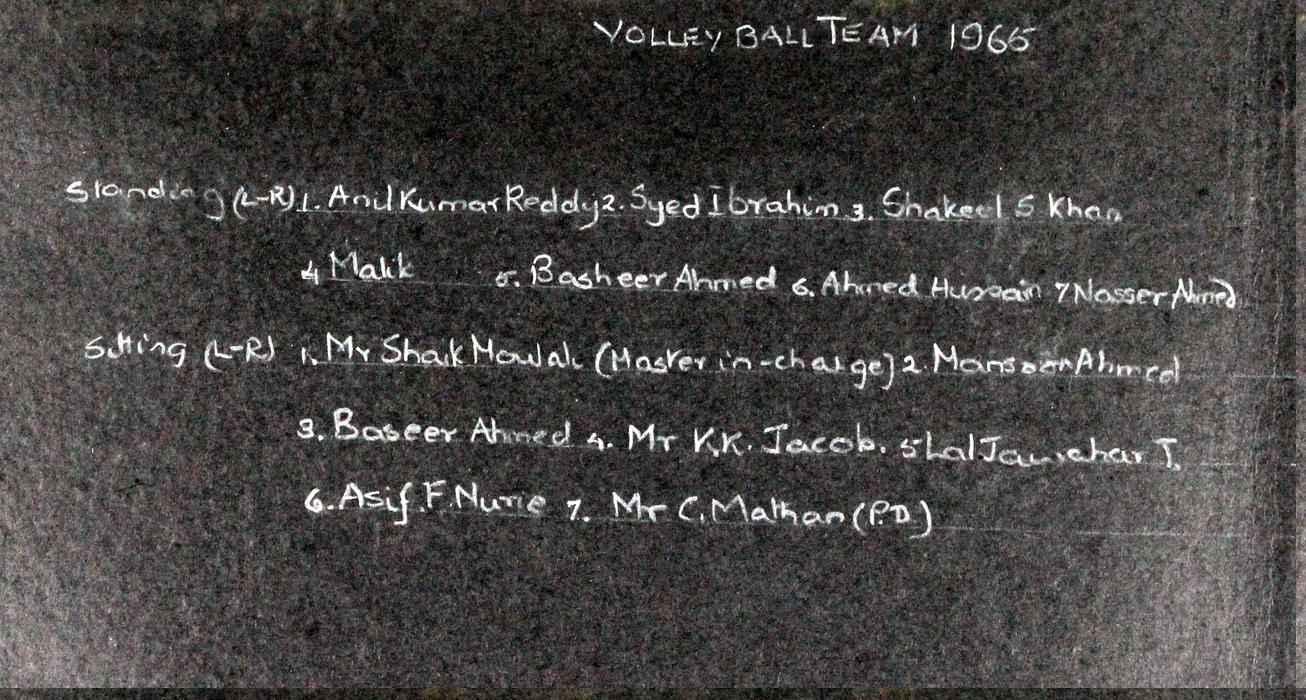 VOLLEY BALL TEAM 1965
Standing (L-R) 1. Anil Kumar Reddy 2. Syed Ibrahim 3. Shakeel S Khan
4 Malik 5. Basheer Ahmed 6. Ahmed Hussain 7 Nasser Ahmed
Sitting (L-R) 1. Mr Shaik Mowlali (Master in-charge) 2. Mansoor Ahmed
3. Baseer Ahmed 4. Mr K.K. Jacob. 5 Lal Jawahar T.
6. Asif. F. Nurie 7. Mr C. Mathan (P.D.)